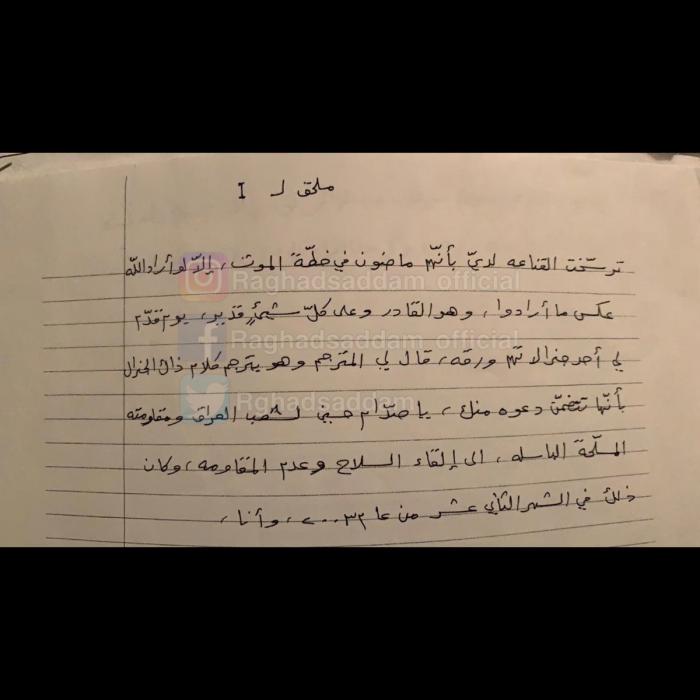 ملحق لـ I
ترسّخت القناعه لديّ بأنّهم ماضون في خطّة الموت، إلّا لو أراد اللّه
عكس ما أرادوا، وهو القادر وعلى كلّ شيئٍ قدير، يوم قدّم
لي أحد جنرالاتهم ورقه، قال لي المترجم وهو يترجم كلام ذاك الجنرال
بأنّها تتضمّن دعوه منك، يا صدّام حسين لشعب العراق ومقاومته
المسلّحة الباسله، الى إلقاء السلاح وعدم المقاومه، وكان
ذلك في الشهر الثاني عشر من عام ٢٠٠٣، وأنا،
Raghadsaddam_official
Raghadsaddam_official
Rghadsaddam